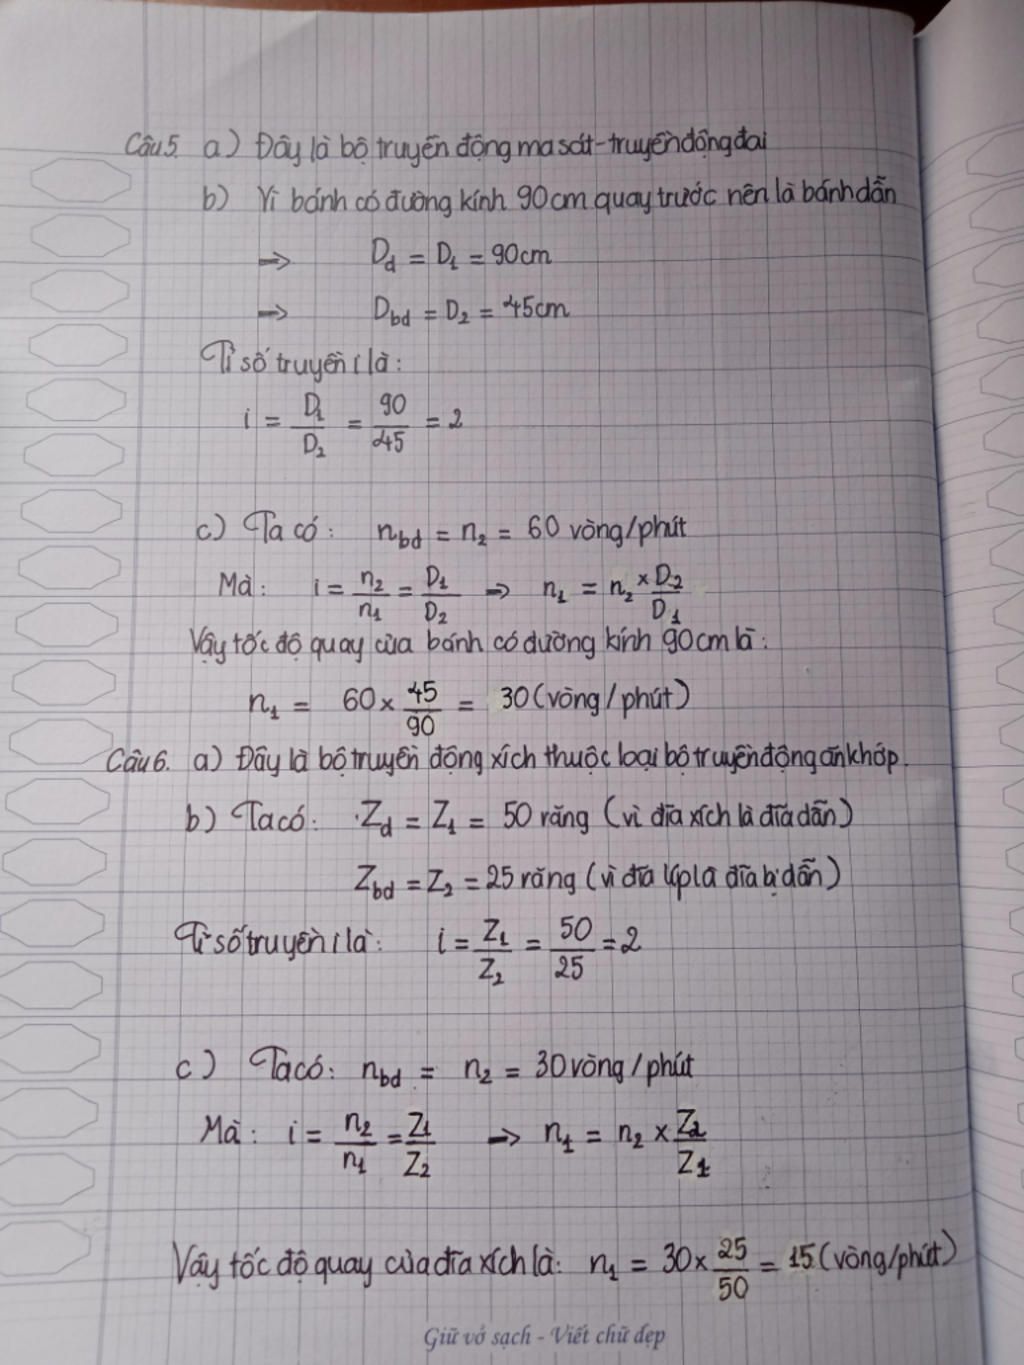 Câu 5. a) Đây là bộ truyền động ma sát - truyền động đai
b) Vì bánh có đường kính 90cm quay trước nên là bánh dẫn
=> D_d = D_1 = 90cm
=> D_bd = D_2 = 45cm
Tỉ số truyền i là:
i = D_1/D_2 = 90/45 = 2
c) Ta có: n_bd = n_2 = 60 vòng/phút
Mà: i = n_2/n_1 = D_1/D_2 => n_1 = n_2 × D_2/D_1
Vậy tốc độ quay của bánh có đường kính 90cm là:
n_1 = 60 × 45/90 = 30 (vòng/phút)
Câu 6. a) Đây là bộ truyền động xích thuộc loại bộ truyền động ăn khớp.
b) Ta có: Z_d = Z_1 = 50 răng (vì đĩa xích là đĩa dẫn)
Z_bd = Z_2 = 25 răng (vì đĩa líp là đĩa bị dẫn)
Tỉ số truyền i là: i = Z_1/Z_2 = 50/25 = 2
c) Ta có: n_bd = n_2 = 30 vòng/phút
Mà: i = n_2/n_1 = Z_1/Z_2 -> n_1 = n_2 × Z_2/Z_1
Vậy tốc độ quay của đĩa xích là: n_1 = 30 × 25/50 = 15 (vòng/phút)
Giữ vở sạch - Viết chữ đẹp